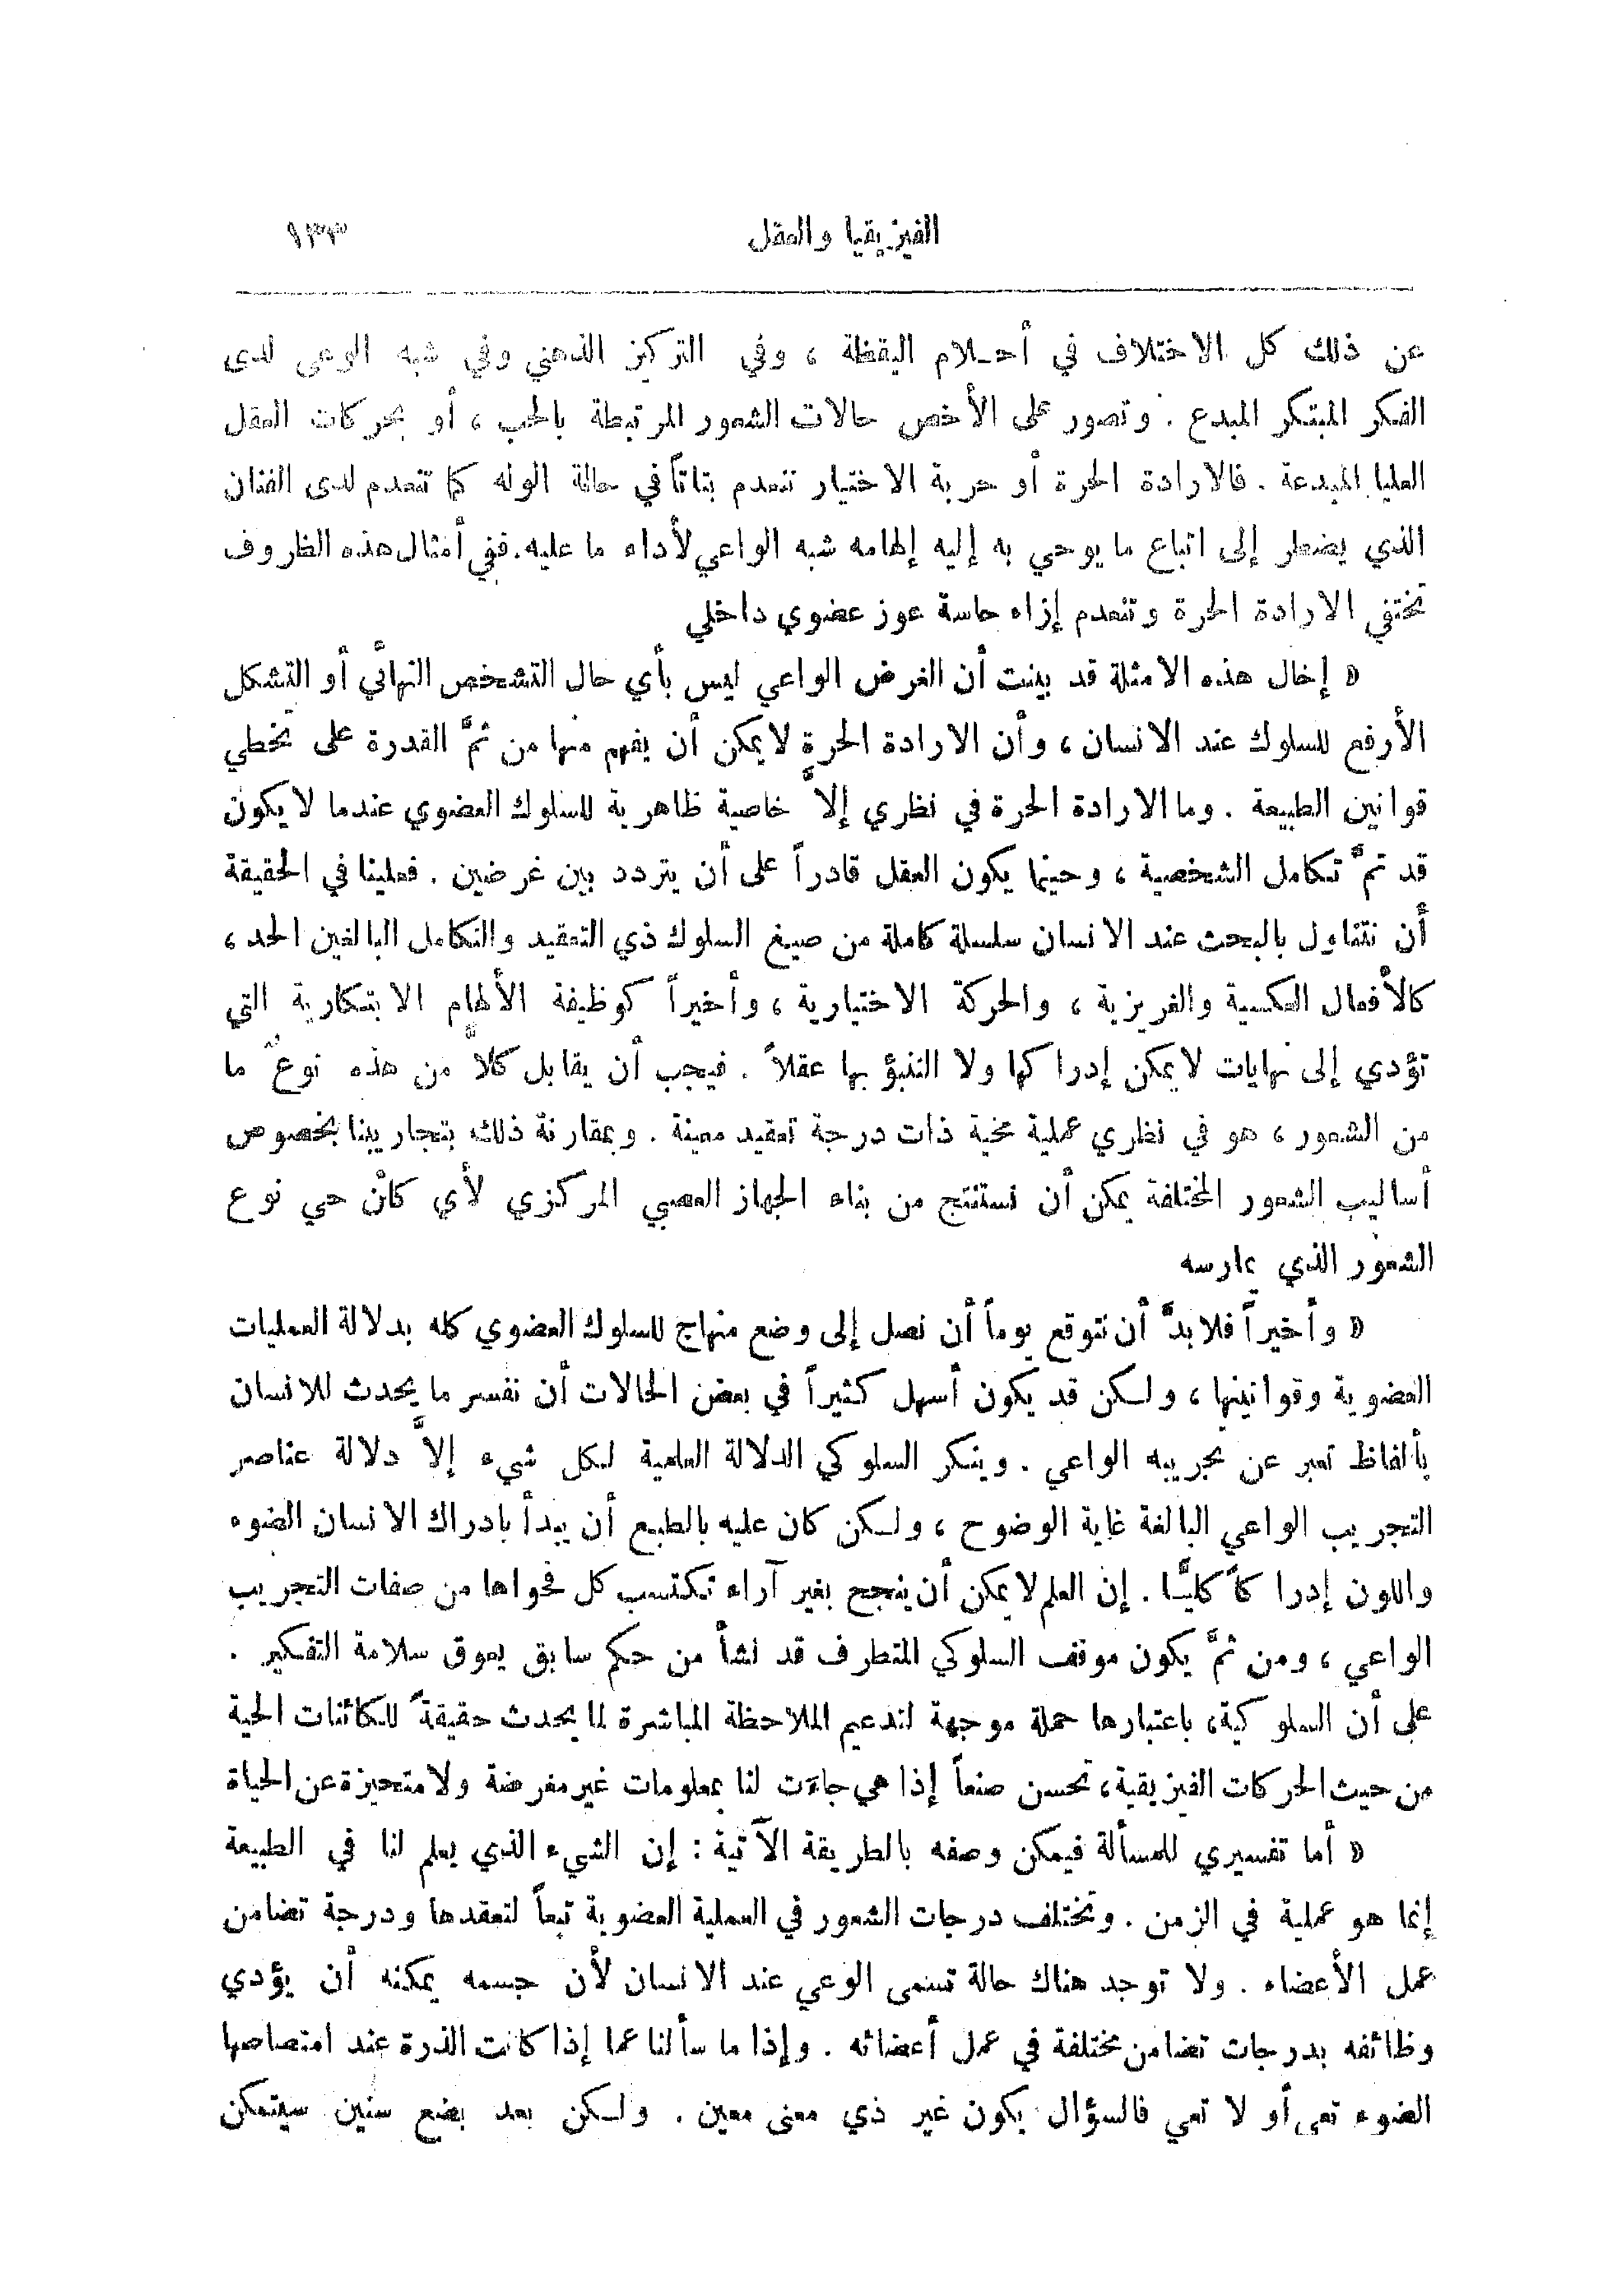 الفيزيقيا والعقل ١٣٣
عن ذلك كل الاختلاف في أحـلام اليقظة ، وفي التركيز الذهني وفي شبه الوعى لدى
الفكر المبتكر المبدع . وتصور على الأخص حالات الشعور المرتبطة بالحب ، أو بحركات العقل
العليا المبدعة . فالارادة الحرة أو حرية الاختيار تنعدم بتاتاً في حالة الوله كما تنعدم لدى الفنان
الذي يضطر إلى اتباع ما يوحي به إليه إلهامه شبه الواعي لأداء ما عليه. ففي أمثال هذه الظروف
تختفي الارادة الحرة وتنعدم إزاء حاسة عوز عضوي داخلي
« إخال هذه الامثلة قد بينت أن الغرض الواعي ليس بأي حال التشخص النهائي أو التشكل
الأرفع للسلوك عند الانسان ، وأن الارادة الحرة لا يمكن أن يفهم منها من ثمَّ القدرة على تخطي
قوانين الطبيعة . وما الارادة الحرة في نظري إلاَّ خاصية ظاهرية للسلوك العضوي عندما لا يكون
قد تمَّ تكامل الشخصية ، وحينما يكون العقل قادراً على أن يتردد بين غرضين . فعلينا في الحقيقة
أن نتناول بالبحث عند الانسان سلسلة كاملة من صيغ السلوك ذي التعقيد والتكامل البالغين الحد ،
كالأفعال العكسية والغريزية ، والحركة الاختيارية ، وأخيراً كوظيفة الألهام الابتكارية التي
تؤدي إلى نهايات لا يمكن إدراكها ولا التنبؤ بها عقلاً . فيجب أن يقابل كلاًّ من هذه نوعٌ ما
من الشعور ، هو في نظري عملية مخية ذات درجة تعقيد معينة . وبمقارنة ذلك بتجاربنا بخصوص
أساليب الشعور المختلفة يمكن أن نستنتج من بناء الجهاز العصبي المركزي لأي كائن حي نوع
الشعور الذي يمارسه
« وأخيراً فلا بدَّ أن نتوقع يوماً أن نصل إلى وضع منهاج للسلوك العضوي كله بدلالة العمليات
العضوية وقوانينها ، ولكن قد يكون أسهل كثيراً في بعض الحالات أن نفسر ما يحدث للانسان
بألفاظ تعبر عن تجريبه الواعي . وينكر السلوكي الدلالة العلمية لكل شيء إلاَّ دلالة عناصر
التجريب الواعي البالغة غاية الوضوح ، ولكن كان عليه بالطبع أن يبدأ بادراك الانسان الضوء
واللون إدراكاً كليًّا . إن العلم لا يمكن أن ينجح بغير آراء تكتسب كل فحواها من صفات التجريب
الواعي ، ومن ثمَّ يكون موقف السلوكي المتطرف قد نشأ من حكم سابق يعوق سلامة التفكير .
على أن السلوكية، باعتبارها حملة موجهة لتدعيم الملاحظة المباشرة لما يحدث حقيقةً للكائنات الحية
من حيث الحركات الفيزيقية، تحسن صنعاً إذا هي جاءت لنا بمعلومات غير مغرضة ولا متحيزة عن الحياة
« أما تفسيري للمسألة فيمكن وصفه بالطريقة الآتية : إن الشيء الذي يعلم لنا في الطبيعة
إنما هو عملية في الزمن . وتختلف درجات الشعور في العملية العضوية تبعاً لتعقدها ودرجة تضامن
عمل الأعضاء . ولا توجد هناك حالة تسمى الوعي عند الانسان لأن جسمه يمكنه أن يؤدي
وظائفه بدرجات تضامن مختلفة في عمل أعضائه . وإذا ما سألنا عما إذا كانت الذرة عند امتصاصها
الضوء تعى أو لا تعي فالسؤال يكون غير ذي معنى معين . ولكن بعد بضع سنين سيتمكن